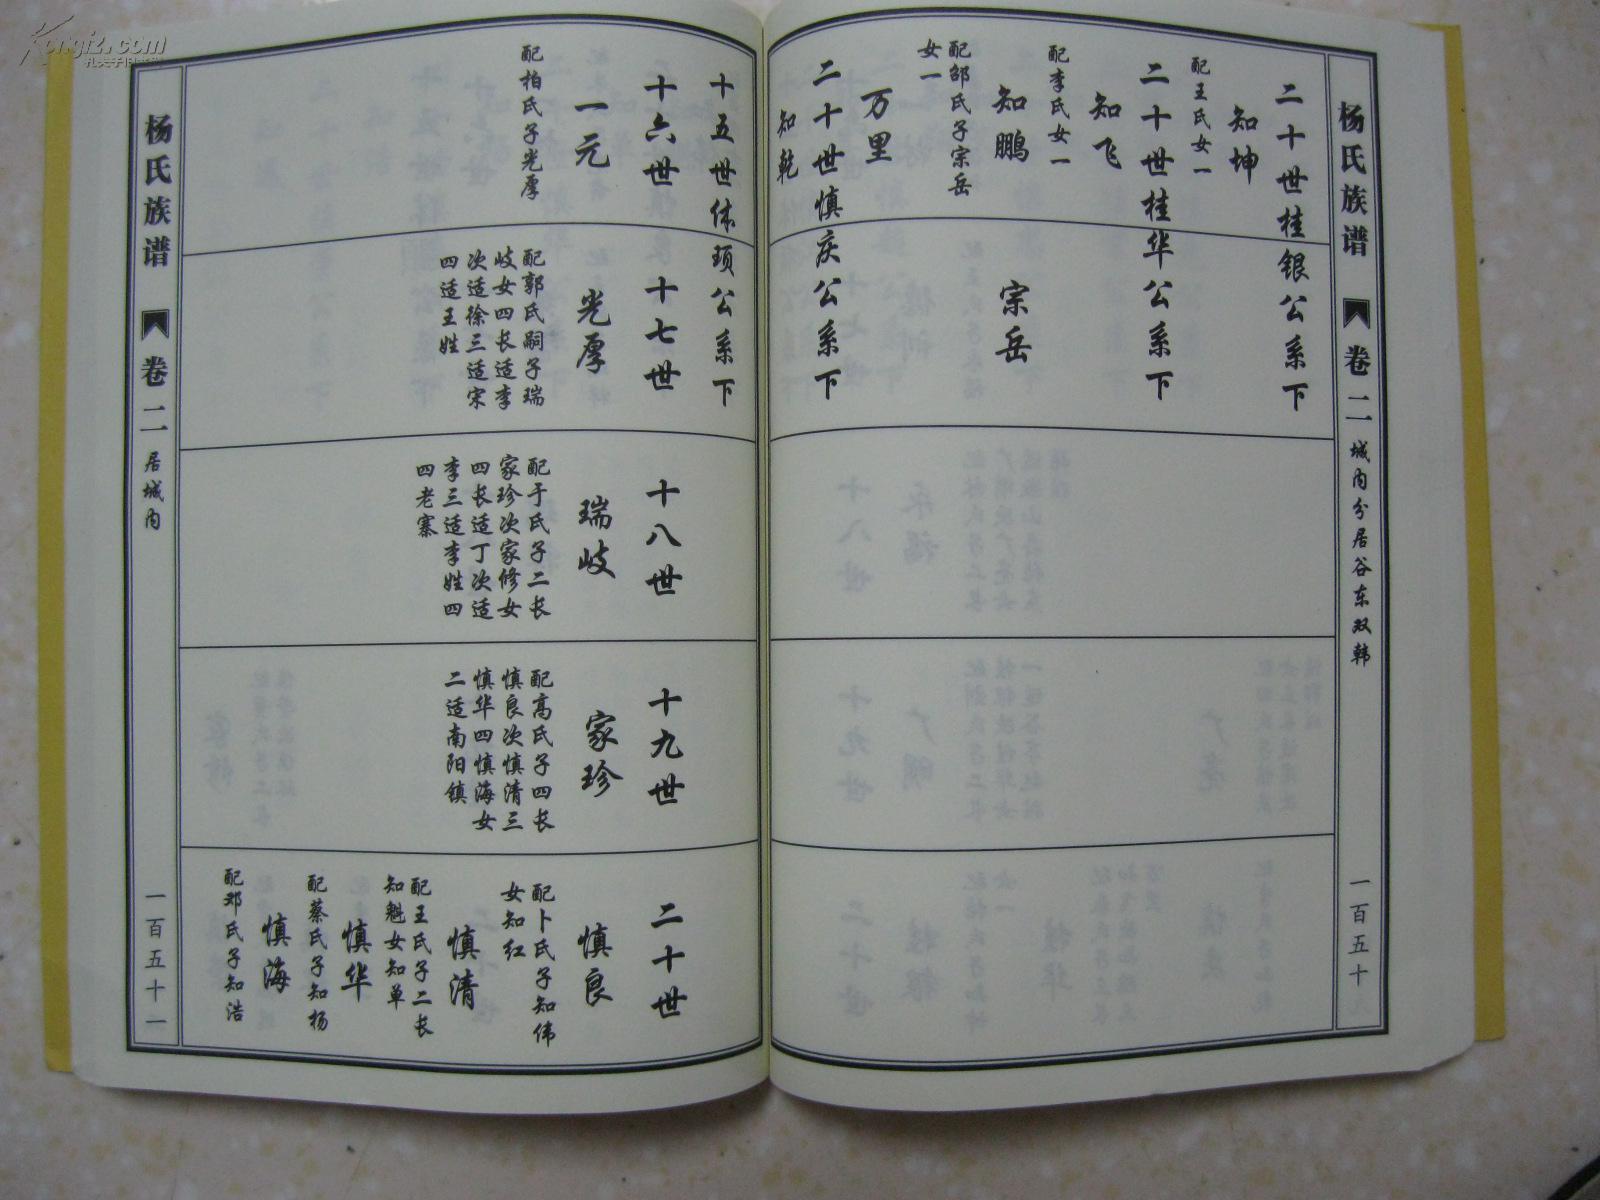 杨氏族谱
卷二
城内分居谷东双韩
一百五十
二十世桂银公系下
知坤
配王氏女一
二十世桂华公系下
知飞
配李氏女一
知鹏
配邵氏子宗岳
女一
宗岳
万里
二十世慎庆公系下
知乾
十五世体顼公系下
十六世
一元
配柏氏子光厚
十七世
光厚
配郭氏嗣子瑞
岐女四长适李
次适徐三适宋
四适王姓
十八世
瑞岐
配于氏子二长
家珍次家修女
四长适丁次适
李三适李姓四
四老寨
十九世
家珍
配高氏子四长
慎良次慎清三
慎华四慎海女
二适南阳镇
二十世
慎良
配卜氏子知伟
女知红
慎清
配王氏子二长
知魁女知单
慎华
配蔡氏子知杨
慎海
配邓氏子知浩
杨氏族谱
卷二
居城内
一百五十一
Kongfz.com
孔夫子旧书网